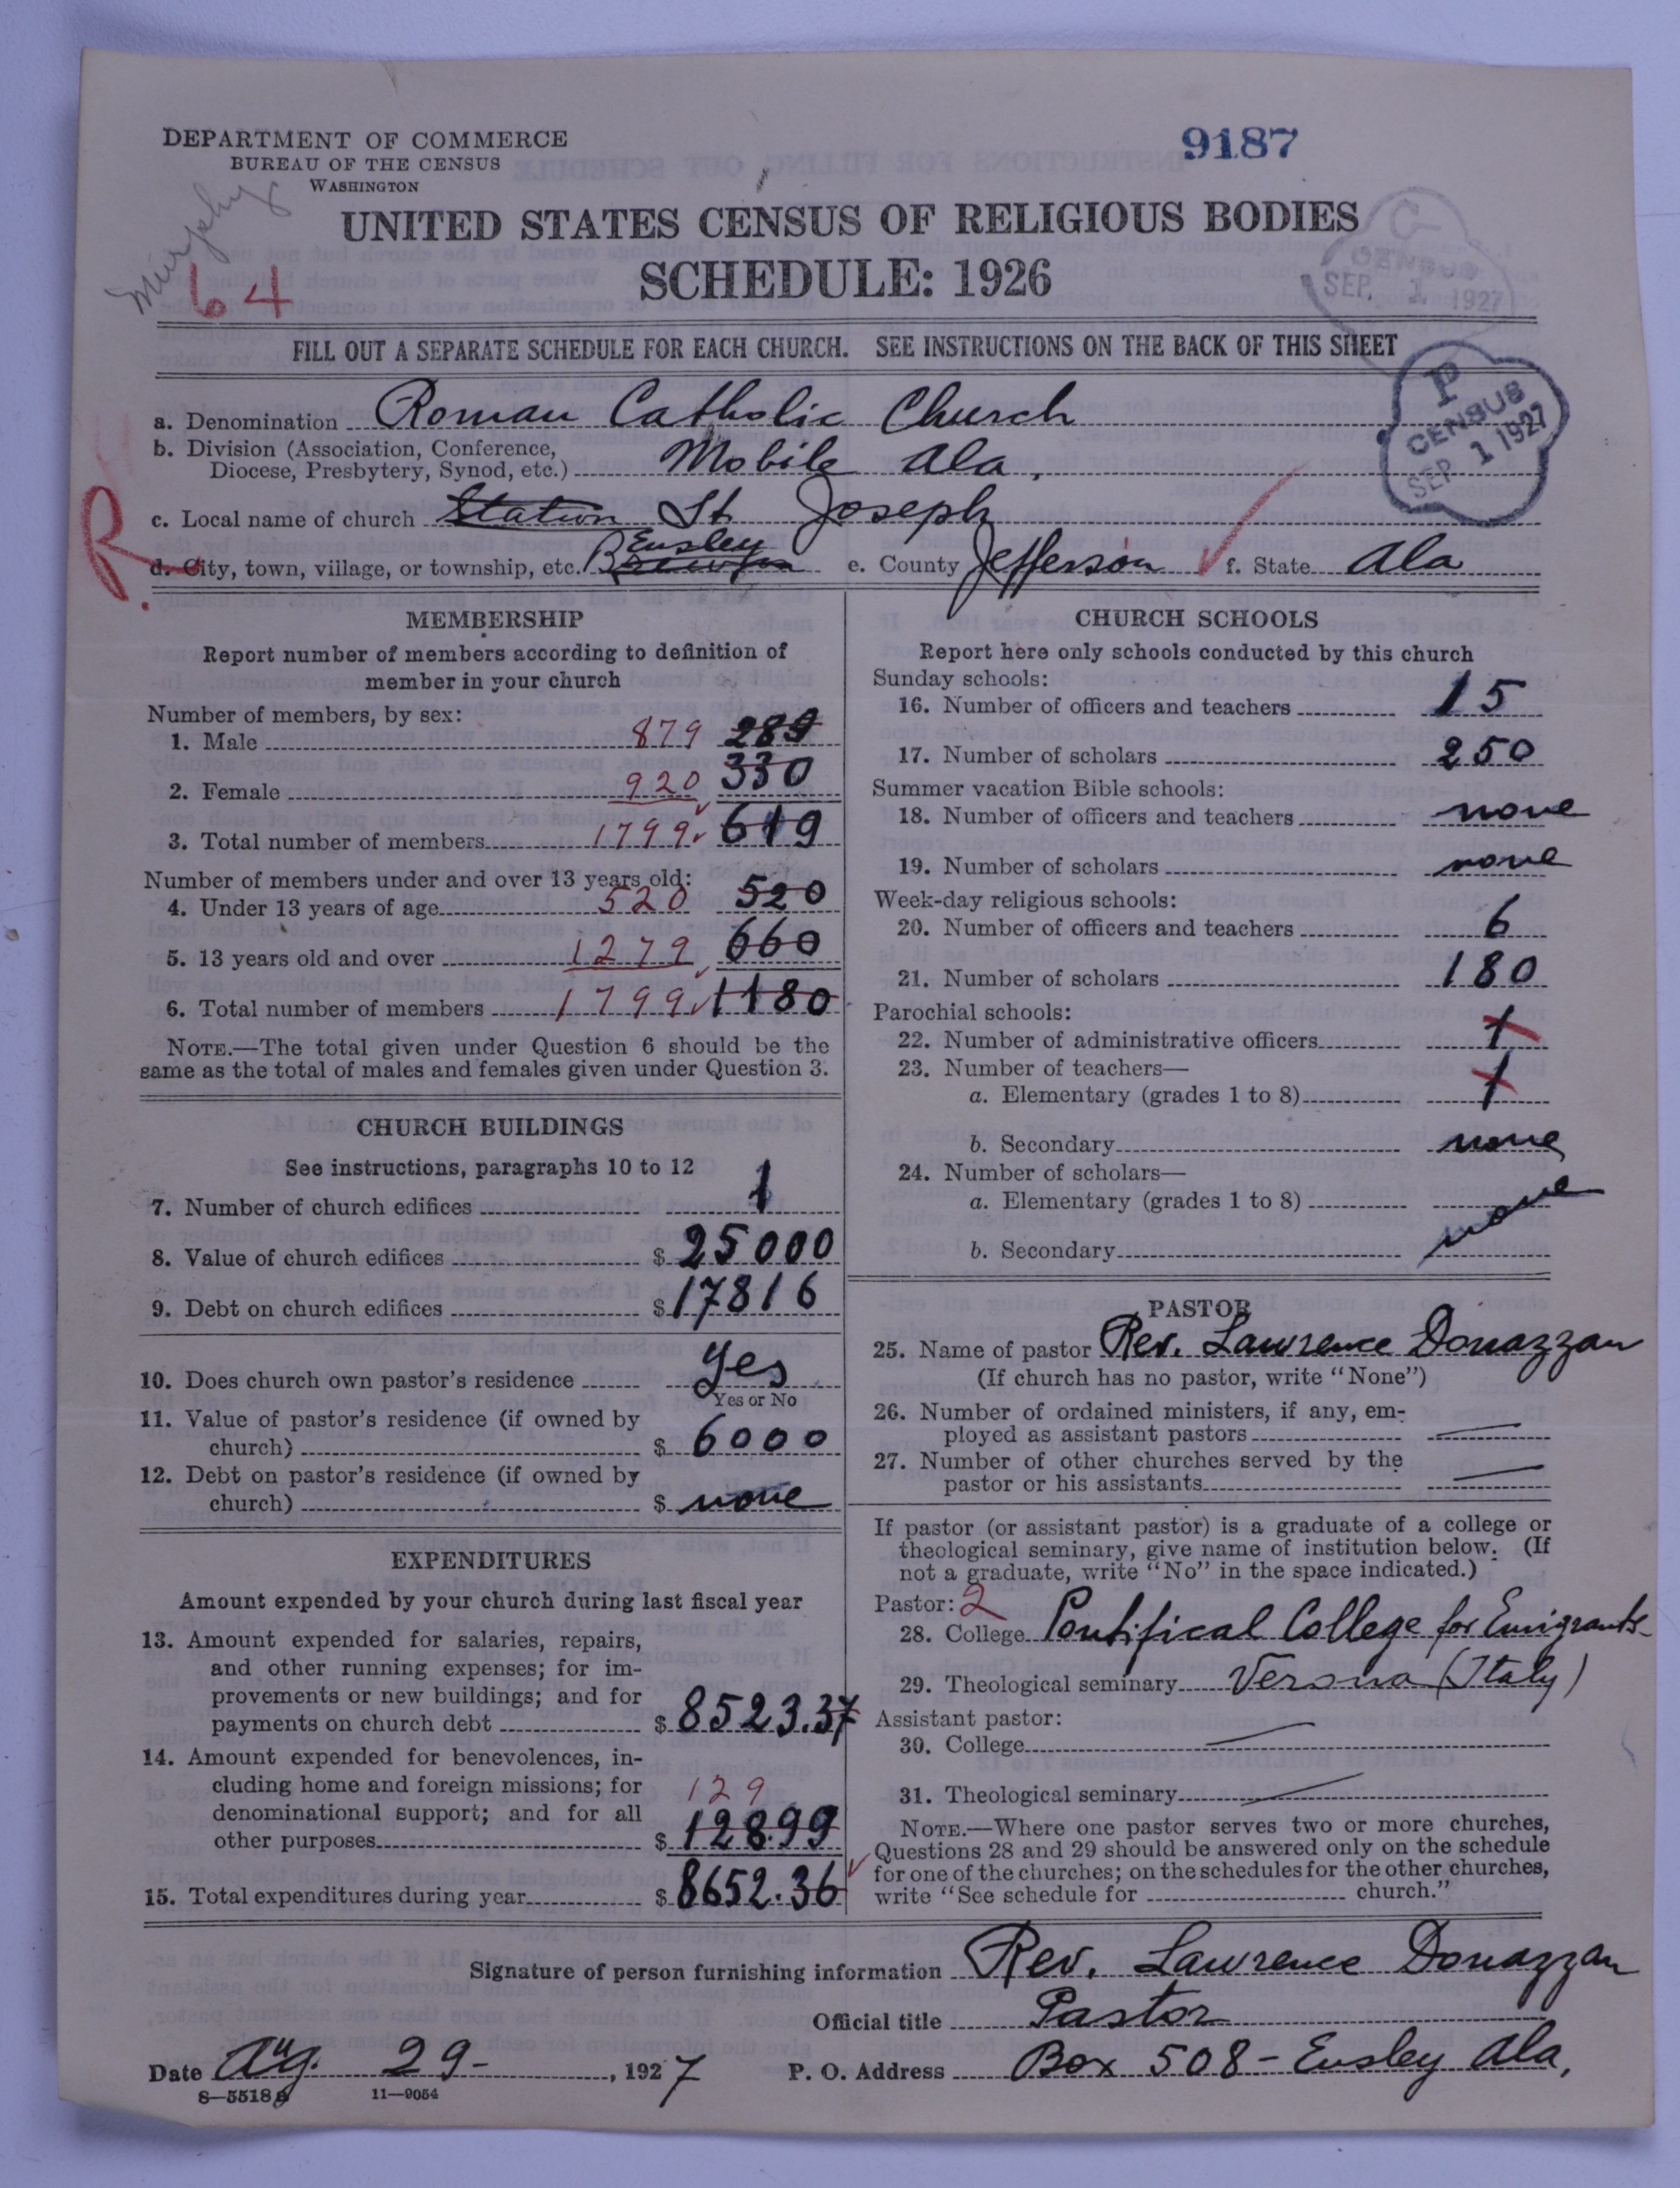 DEPARTMENT OF COMMERCE
BUREAU OF THE CENSUS
WASHINGTON
9187
Murphy
64
UNITED STATES CENSUS OF RELIGIOUS BODIES
SCHEDULE: 1926
C
CENSUS
SEP. 1 1927
FILL OUT A SEPARATE SCHEDULE FOR EACH CHURCH. SEE INSTRUCTIONS ON THE BACK OF THIS SHEET
P
CENSUS
SEP 1 1927
R.
a. Denomination Roman Catholic Church
b. Division (Association, Conference,
Diocese, Presbytery, Synod, etc.) Mobile Ala.
c. Local name of church Station St Joseph
d. City, town, village, or township, etc. Ensley e. County Jefferson f. State Ala
MEMBERSHIP
Report number of members according to definition of
member in your church
Number of members, by sex:
1. Male 879 289
2. Female 920 330
3. Total number of members 1799 619
Number of members under and over 13 years old:
4. Under 13 years of age 520 520
5. 13 years old and over 1279 660
6. Total number of members 1799 1180
NOTE.—The total given under Question 6 should be the
same as the total of males and females given under Question 3.
CHURCH BUILDINGS
See instructions, paragraphs 10 to 12
7. Number of church edifices 1
8. Value of church edifices $ 25000
9. Debt on church edifices $ 17816
10. Does church own pastor's residence Yes
Yes or No
11. Value of pastor's residence (if owned by
church) $ 6000
12. Debt on pastor's residence (if owned by
church) $ none
EXPENDITURES
Amount expended by your church during last fiscal year
13. Amount expended for salaries, repairs,
and other running expenses; for im-
provements or new buildings; and for
payments on church debt $ 8523.37
14. Amount expended for benevolences, in-
cluding home and foreign missions; for
129
denominational support; and for all
other purposes $ 128.99
15. Total expenditures during year $ 8652.36
CHURCH SCHOOLS
Report here only schools conducted by this church
Sunday schools:
16. Number of officers and teachers 15
17. Number of scholars 250
Summer vacation Bible schools:
18. Number of officers and teachers none
19. Number of scholars none
Week-day religious schools:
20. Number of officers and teachers 6
21. Number of scholars 180
Parochial schools:
22. Number of administrative officers 1
23. Number of teachers—
a. Elementary (grades 1 to 8) 1
b. Secondary none
24. Number of scholars—
a. Elementary (grades 1 to 8)
b. Secondary none
PASTOR
25. Name of pastor Rev. Lawrence Donazzan
(If church has no pastor, write "None")
26. Number of ordained ministers, if any, em-
ployed as assistant pastors —
27. Number of other churches served by the
pastor or his assistants —
If pastor (or assistant pastor) is a graduate of a college or
theological seminary, give name of institution below. (If
not a graduate, write "No" in the space indicated.)
Pastor: 2
28. College Pontifical College for Emigrants-
29. Theological seminary Verona (Italy)
Assistant pastor:
30. College —
31. Theological seminary —
NOTE.—Where one pastor serves two or more churches,
Questions 28 and 29 should be answered only on the schedule
for one of the churches; on the schedules for the other churches,
write "See schedule for church."
Signature of person furnishing information Rev. Lawrence Donazzan
Official title Pastor
Date Aug. 29-, 1927 P. O. Address Box 508 - Ensley Ala.
8—5518 a 11—9054